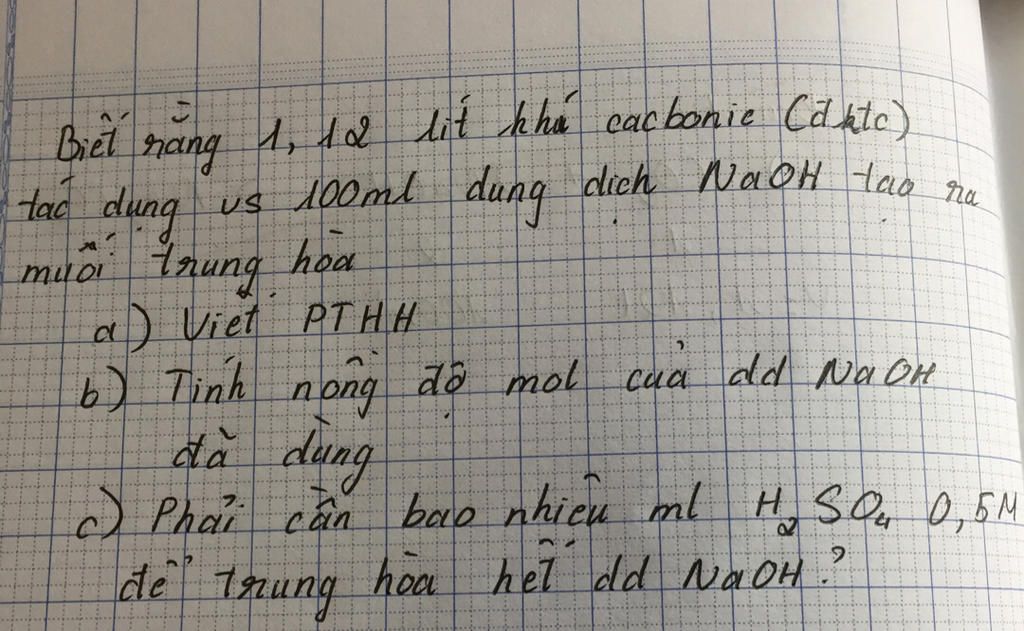 Biết rằng 1,12 lít khí cacbonic (đktc)
tác dụng vs 100ml dung dịch NaOH tạo ra
muối trung hòa
a) Viết PTHH
b) Tính nồng độ mol của dd NaOH
đã dùng
c) Phải cần bao nhiêu ml H₂SO₄ 0,5M
để trung hòa hết dd NaOH?